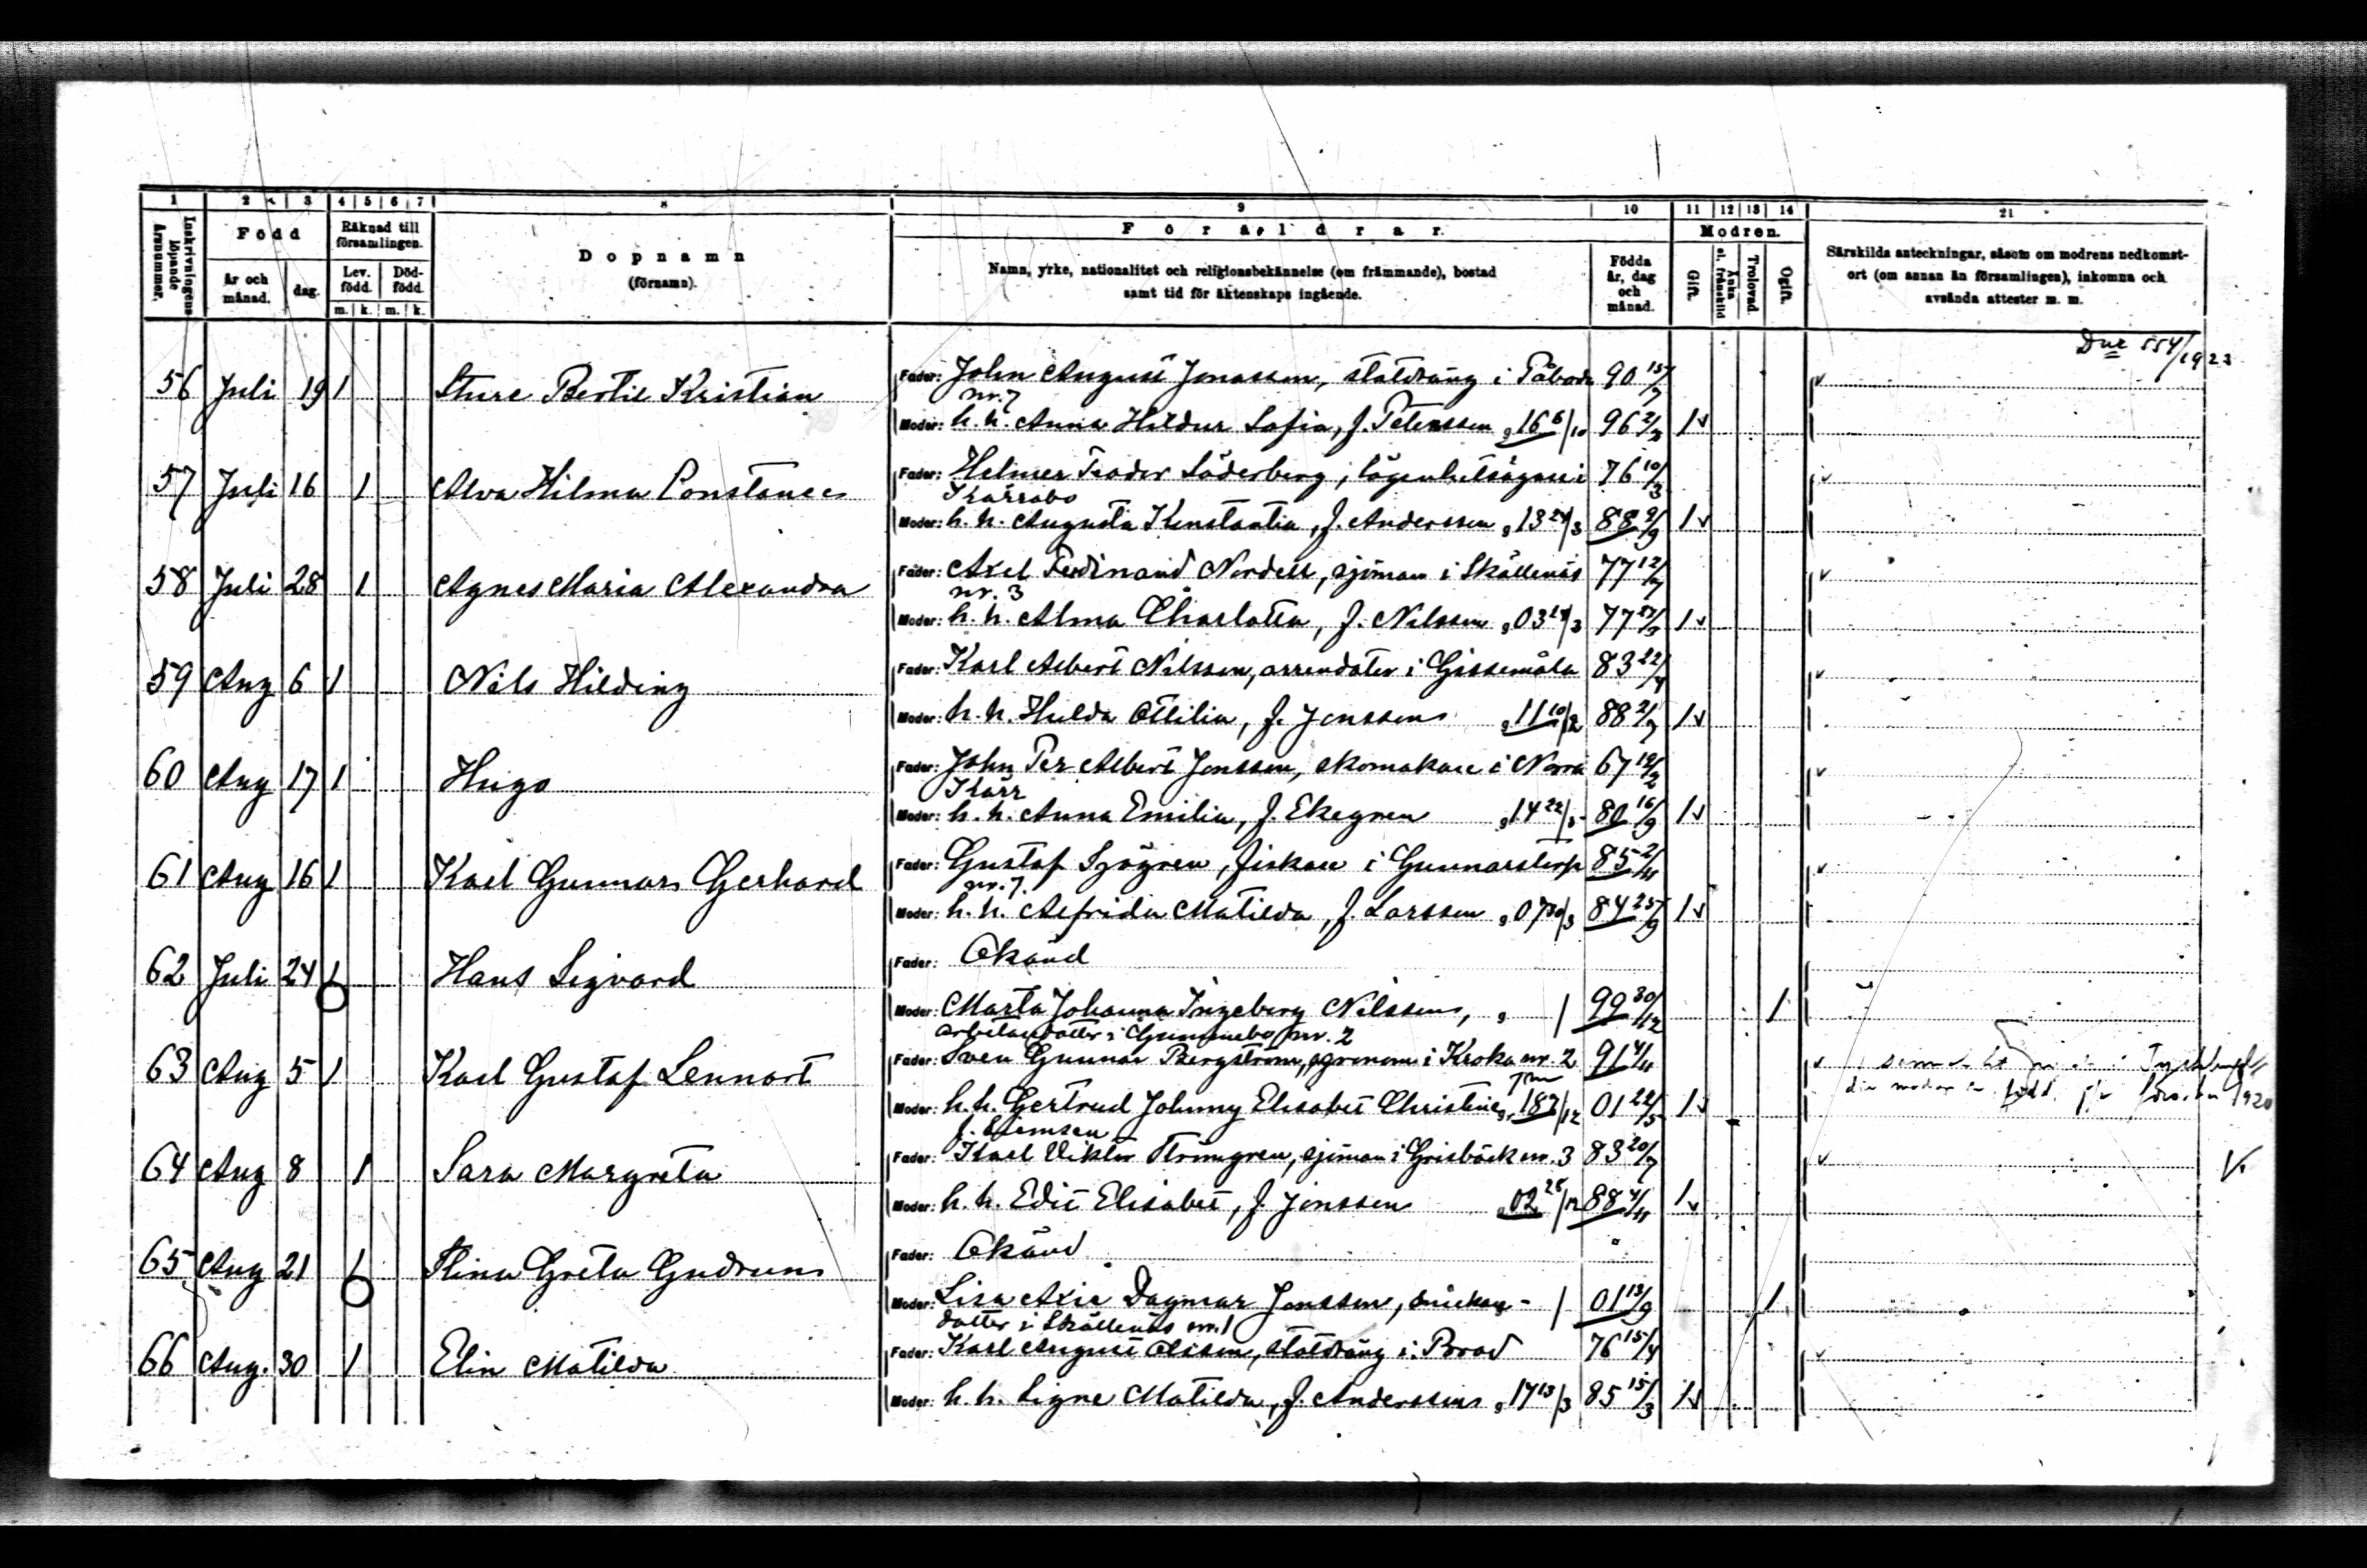 1 2 3 4 5 6 7 8 9 10 11 12 13 14 21
Inskrivningens löpande årsnummer.
Född
år och månad.
dag.
Räknad till församlingen.
Lev. född.
Död-född.
m. k. m. k.
Dopnamn
(förnamn).
Föräldrar.
Namn, yrke, nationalitet och religionsbekännelse (om främmande), bostad
samt tid för äktenskaps ingående.
Födda år, dag och månad.
Modren.
Gift.
Änka el. frånskild
Trolovad.
Ogift.
Särskilda anteckningar, såsom om modrens nedkomst-
ort (om annan än församlingen), inkomna och
avsända attester m. m.
Dnr 554/1923
56 Juli 19 1 Sture Bertil Kristian
Fader: John August Jonasson, statdräng i Påboda 90 15/7
nr. 7
Moder: h. h. Anna Hildur Sofia, f. Petersson, 16 6/10 96 2/3 1
57 Juli 16 1 Alva Hilma Constance
Fader: Helmer Teodor Söderberg, lägenhetsägare i 76 10/3
Kärrabo
Moder: h. h. Augusta Konstantia, f. Andersson, 13 24/3 88 9/9 1
58 Juli 28 1 Agnes Maria Alexandra
Fader: Axel Ferdinand Nordell, sjöman i Skällenäs 77 12/7
nr. 3
Moder: h. h. Alma Charlotta, f. Nilsson, 03 24/3 77 1
59 Aug 6 1 Nils Hilding
Fader: Karl Albert Nilsson, arrendator i Gissemåla 83 22/4
Moder: h. h. Hulda Ottilia, f. Jonsson 11 10/12 88 2/7 1
60 Aug 17 1 Hugo
Fader: John Per Albert Jonsson, skomakare i Norra 67 12/2
Kärr
Moder: h. h. Anna Emilia, f. Ekegren 14 22/5 80 16/9 1
61 Aug 16 1 Karl Gunnar Gerhard
Fader: Gustaf Sjögren, fiskare i Gunnarstorp 85 2/11
nr. 7.
Moder: h. h. Alfrida Matilda, f. Larsson, 07 30/3 84 25/9 1
62 Juli 24 1 Hans Sigvard
Fader: Okänd
Moder: Märta Johanna Ingeborg Nilsson, 99 30/12 1
arbetaredotter i Gunnnebo nr. 2
63 Aug 5 1 Karl Gustaf Lennart
Fader: Sven Gunnar Bergström, agronom i Kroka nr. 2 91 4/11
Moder: h. h. Gertrud Johnny Elisabet Christine, 18 7/12 01 22/5 1
f.
moder född 1920
64 Aug 8 1 Sara Margreta
Fader: Karl Viktor Strömgren, sjöman i Grisbäck nr. 3 83 20/7
Moder: h. h. Edit Elisabet, f. Jonsson 88 4/11 1
65 Aug 21 1 Stina Greta Gudrun
Fader: Okänd
Moder: Lisa Axie Dagmar Jonsson, snickare- 01 13/9 1
dotter i Skällenäs nr. 1
66 Aug. 30 1 Elin Matilda
Fader: Karl August Olsson, statdräng i Broad 76 15/4
Moder: h. h. Signe Matilda, f. Andersson, 17 13/3 85 15/3 1